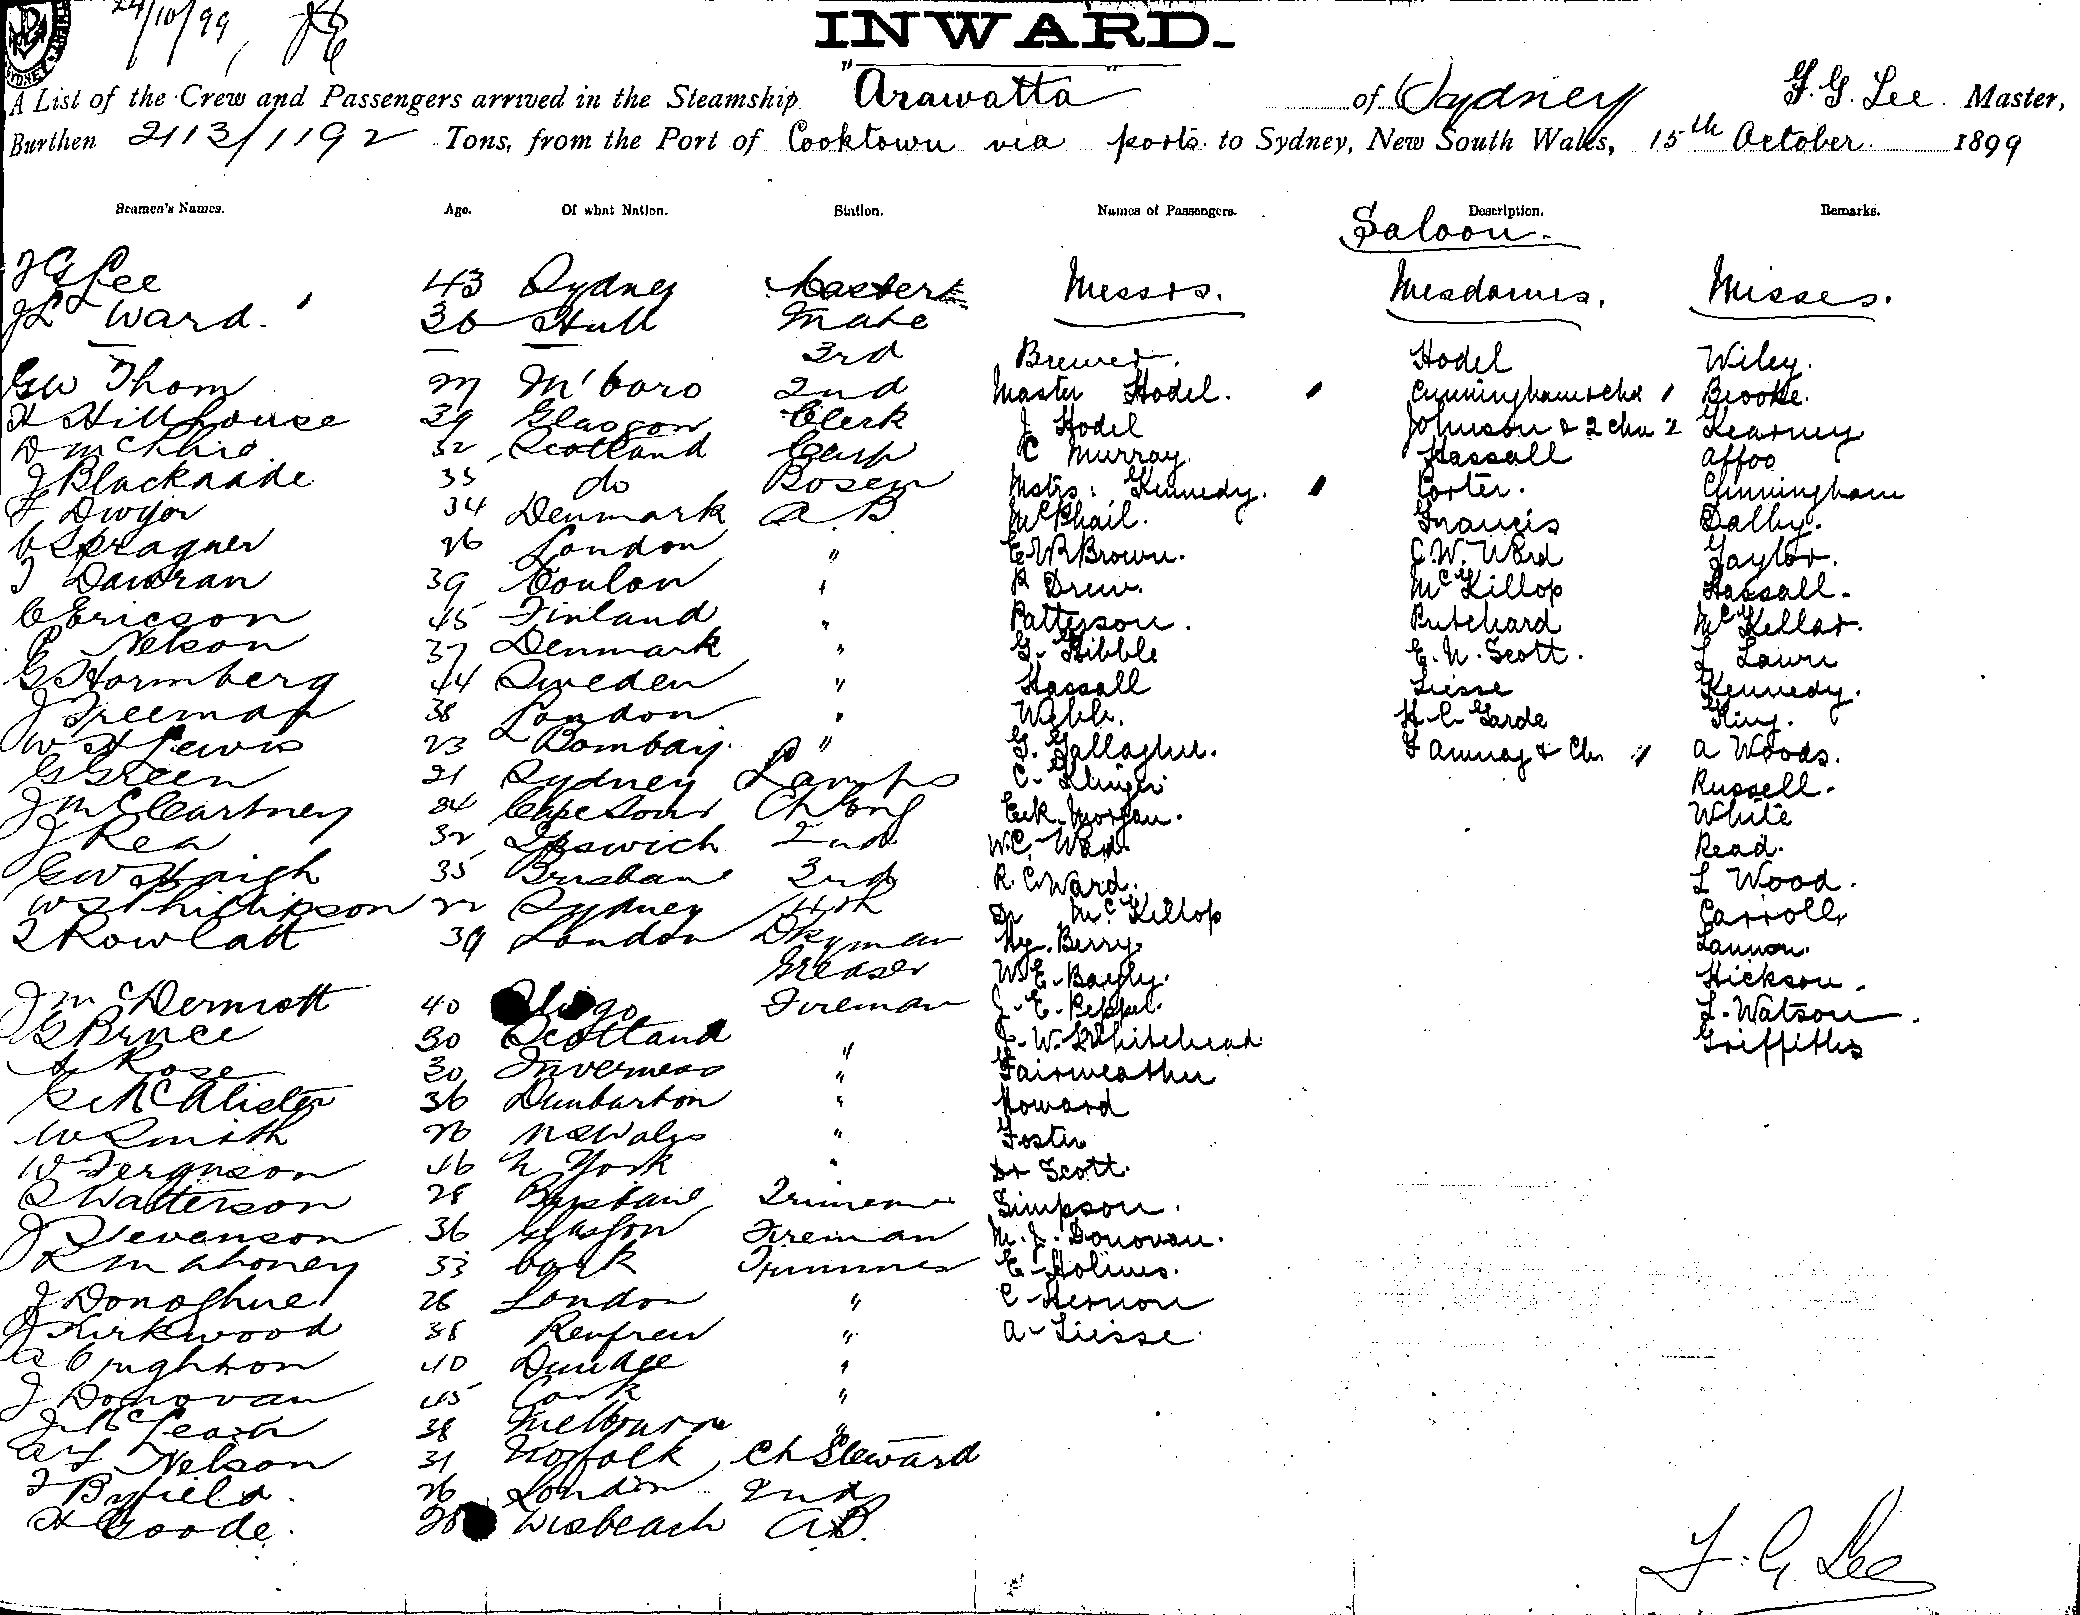 24/10/99
INWARD.
A List of the Crew and Passengers arrived in the Steamship "Arawatta" of Sydney F. G. Lee Master,
Burthen 2113/1192 Tons, from the Port of Cooktown via ports to Sydney, New South Wales, 15th October 1899
Seamen's Names. Age. Of what Nation. Station. Names of Passengers. Description. Remarks.
Saloon.
F G Lee 43 Sydney Master Messrs. Mesdames. Misses.
Ward. 36 Hull Mate
3rd Brewer. Hodel Wiley.
GW Thom 27 M'boro 2nd Master Hodel. Cunningham & chd 1 Brooke.
H Hillhouse 29 Glasgow Clerk J Hodel Johnson & 2 chn 2 Kearney
D 32 Scotland Carp C Murray. Hassall Affoo
J Blacknade 35 do Bosen Mstrs. Kennedy. Porter. Cunningham
F Dwyor 34 Denmark A.B McPhail. Francis Dalby.
26 London " E.W.R Brown. C.W. Ward Taylor.
39 Toulon " R Drew. McKillop Hassall.
C Ericson 45 Finland " Patterson. Pritchard McKellar.
P Nelson 37 Denmark " G. Kibble E. N. Scott. L Lawri
G Stormberg 44 Sweden " Hassall Liesse Kennedy.
J Freeman 38 London " Webb. H. C. Garde King.
W H Lewis 23 Bombay. " G. Gallagher. & Ch. 1 A Woods.
G Green 21 Sydney Lamps C. Russell.
J McCartney 34 Cape Town Ch Eng Morgan. White
J Rea 32 Ipswich 2nd W.C. Ward. Read.
GW Haigh 35 Brisbane 3rd R. C. Ward. L Wood.
WS Phillipson 22 Sydney 4th Dr McKillop Carroll
T Rowlatt 39 London Dkyman Hy. Berry. Lannon.
Greaser W. E. Bayly. Hickson.
J McDermott 40 Fireman J. E. Peppel. L. Watson.
G Bruce 30 Scotland " W. Whitehead Griffiths
A Rose 30 Inverness " Fairweather
G McAlister 36 Dunbarton " Howard
W Smith 26 N S Wales " Foster
W Ferguson 46 N York " Dr Scott.
S Watterson 28 Brisbane Trimmer Simpson.
J Stevenson 36 Glasgow Fireman M. J. Donovan.
R Mahoney 33 Cork Trimmer E. Holmes.
J Donoghue 26 London " C. Hernon
J Kirkwood 38 Renfrew " A. Liesse
40 Dundee "
J Donovan 45 Cork "
J McLean 38 Melbourne "
A L Nelson 31 Norfolk Ch Steward
F Byfield. 26 London 2nd
H Goode. 28 Wisbeach A.B.
F. G. Lee